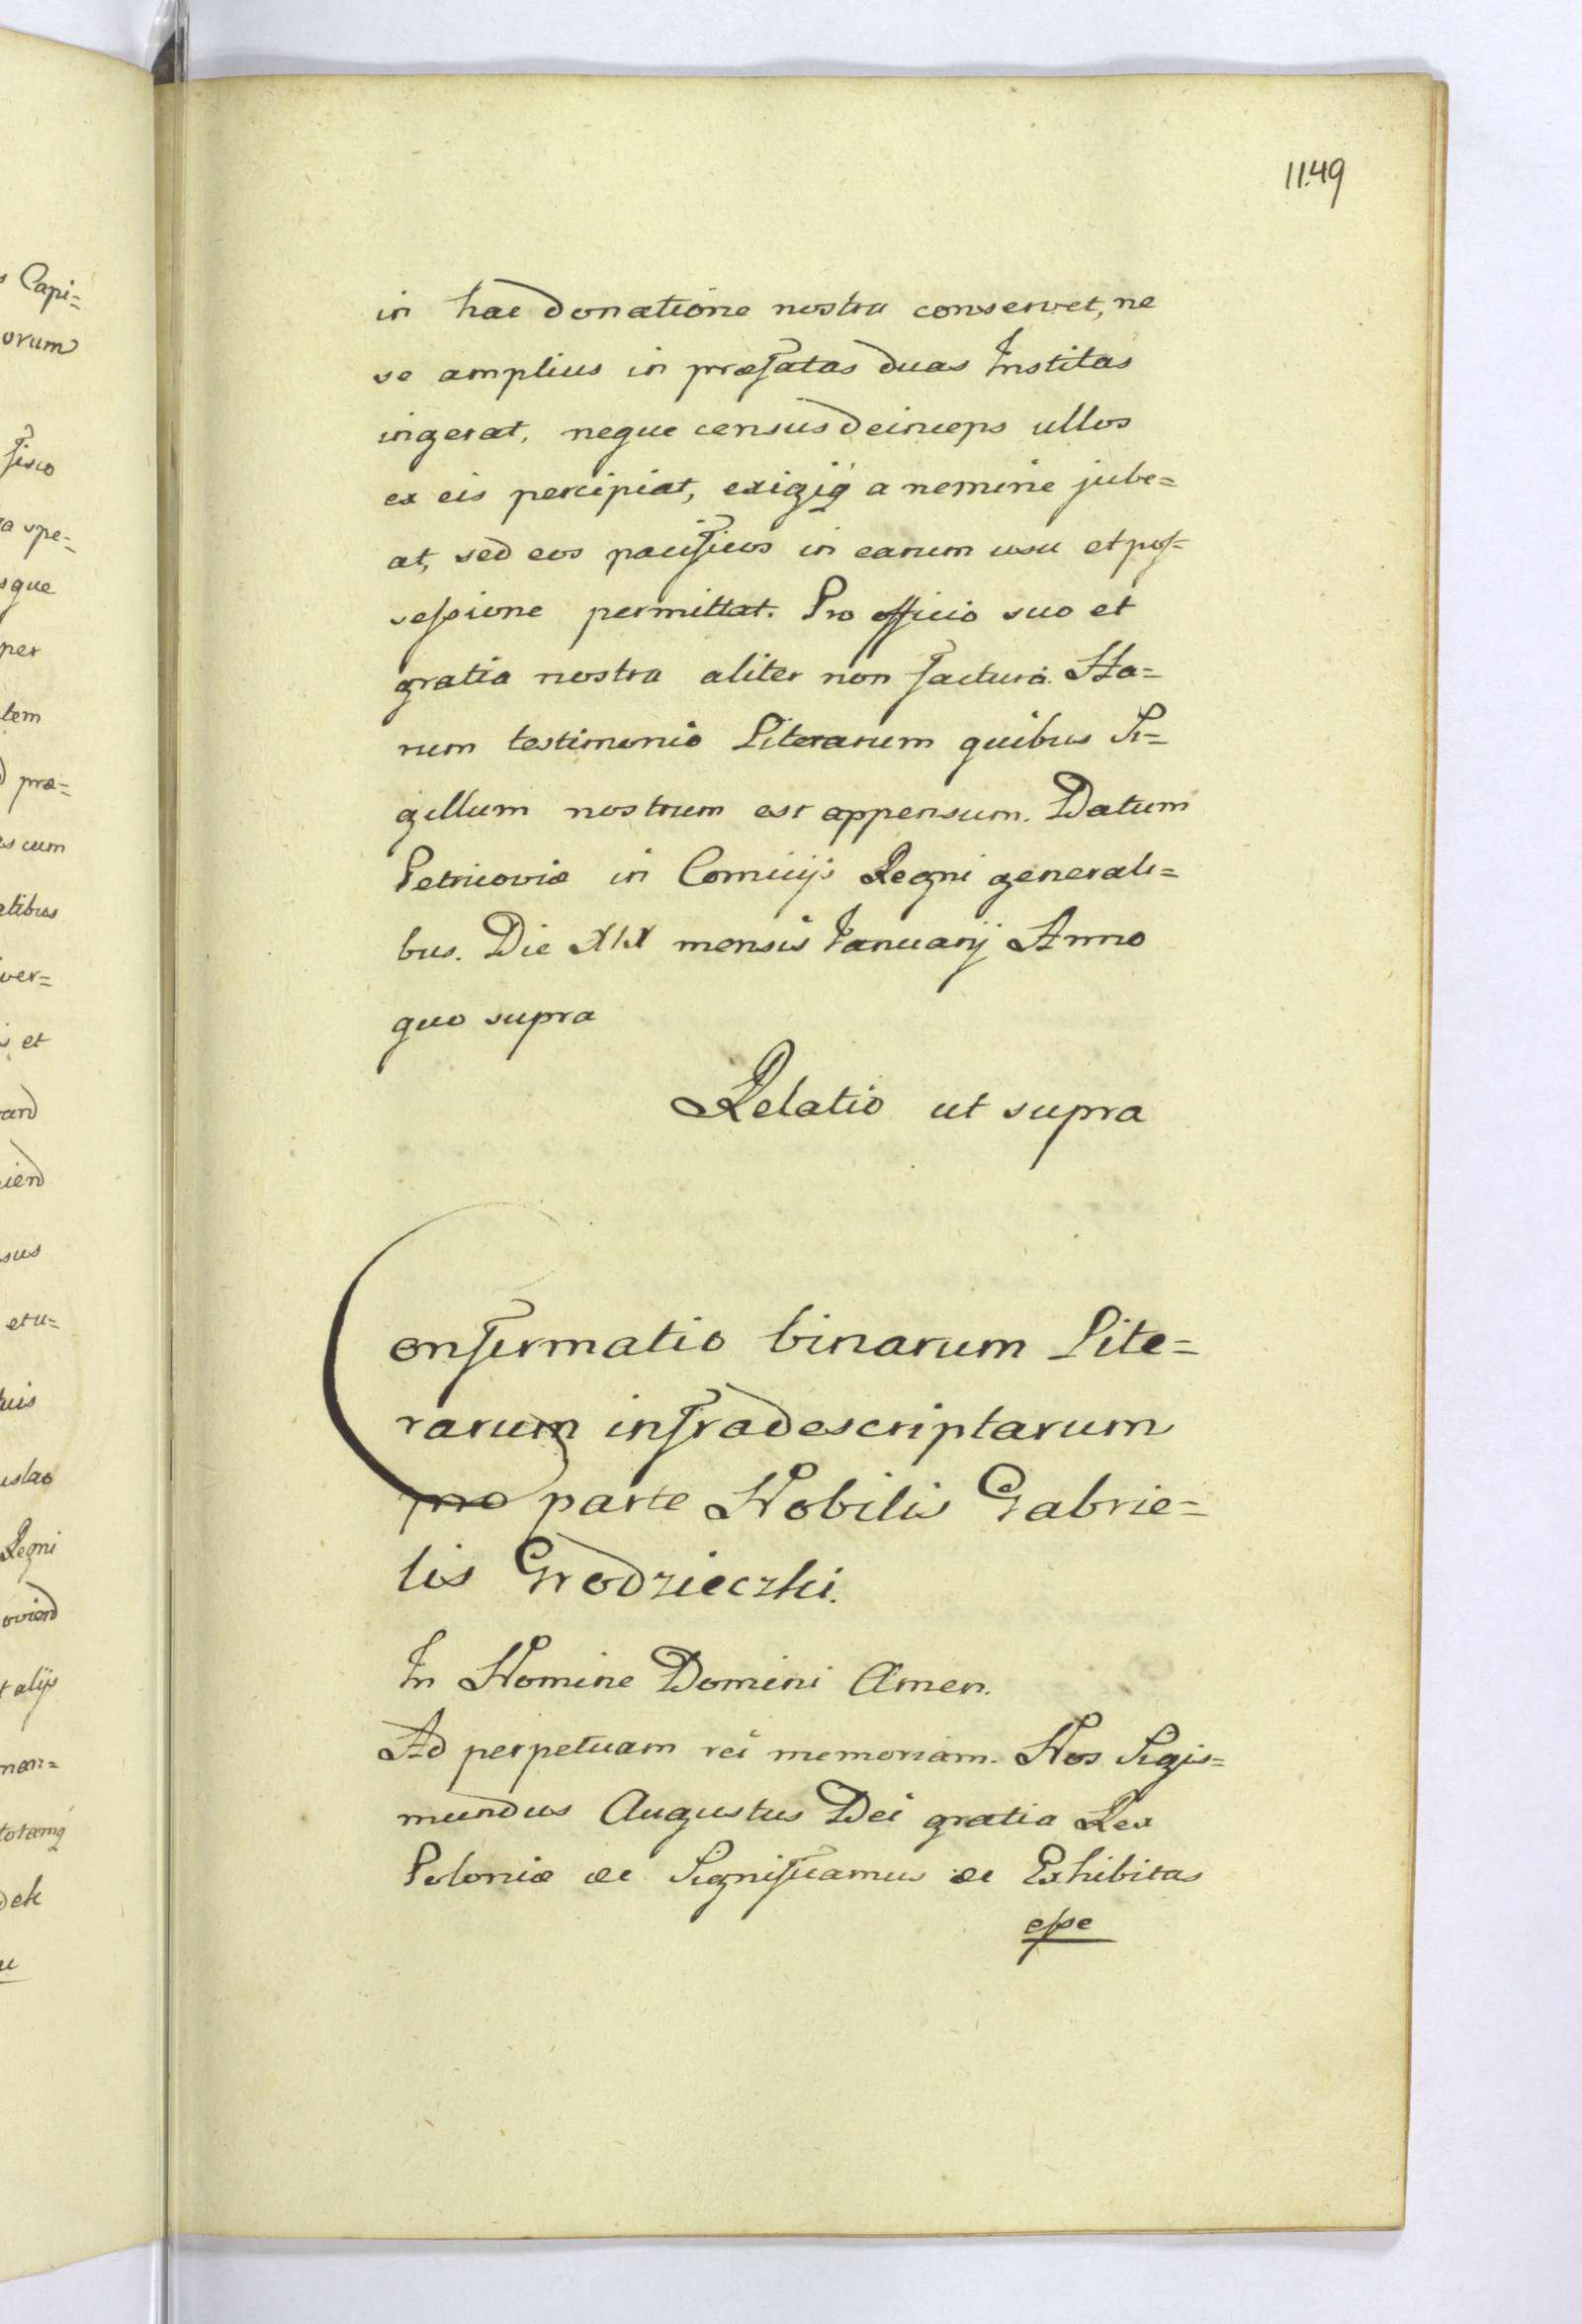 1149
in hac donatione nostra conservet, ne
se amplius in præfatas duas Institas
ingerat, neque census deinceps ullos
ex eis percipiat, exigiq́ a nemine jube=
at, sed eos pacificos in earum usu et pos=
sessione permittat. Pro officio suo et
gratia nostra aliter non factura. Ha=
rum testimonio Literarum quibus Si=
gillum nostrum est appensum. Datum
Petricoviæ in Comicijs Regni generali=
bus. Die XIX mensis Januarij Anno
quo supra
Relatio ut supra
Confirmatio binarum Lite=
rarum infradescriptarum
pro parte Nobilis Gabrie=
lis Grodzieczki.
In Nomine Domini Amen.
Ad perpetuam rei memoriam. Nos Sigis=
mundus Augustus Dei gratia Rex
Poloniæ &c Significamus &c Exhibitas
esse
s Capi=
orum
fisco
a spe=
sque
per
tem
præ=
s cum
atibus
ver=
s et
rand
iend
sus
et u=
uis
islao
Regni
oviend
t alijs
man=
totamq́
dek